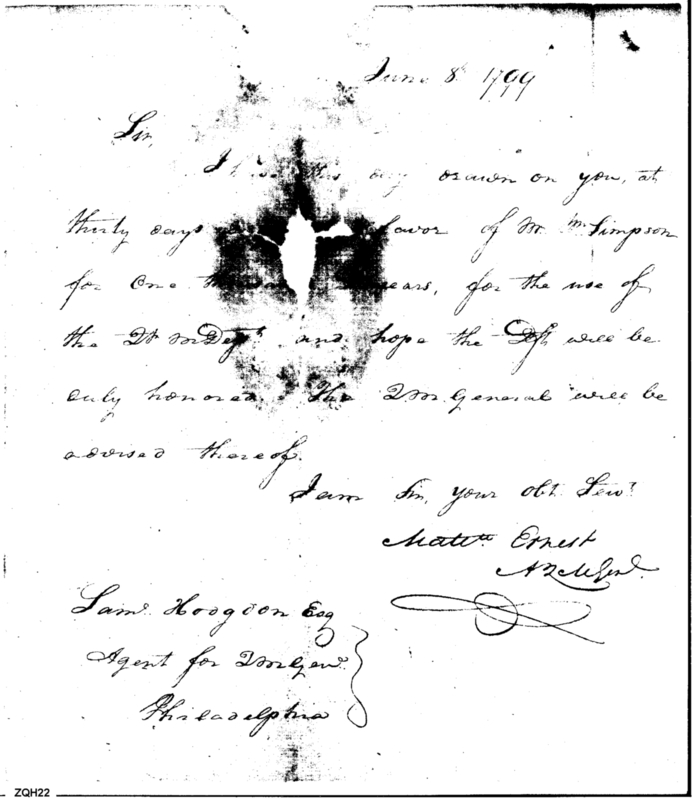 June 8th 1799
Sir,
I have this day drawn on you, at
thirty days favor of Mr. Wm Simpson
for One thousand Dollars, for the use of
the Qr Mr Dept and hope the Dft will be
duly honored. The Q M General will be
advised thereof.
I am Sir, your obt. Servt
Matth. Ernest
A Q M Genl.
Saml. Hodgdon Esq
Agent for Q M Genl.
Philadelphia
ZQH22